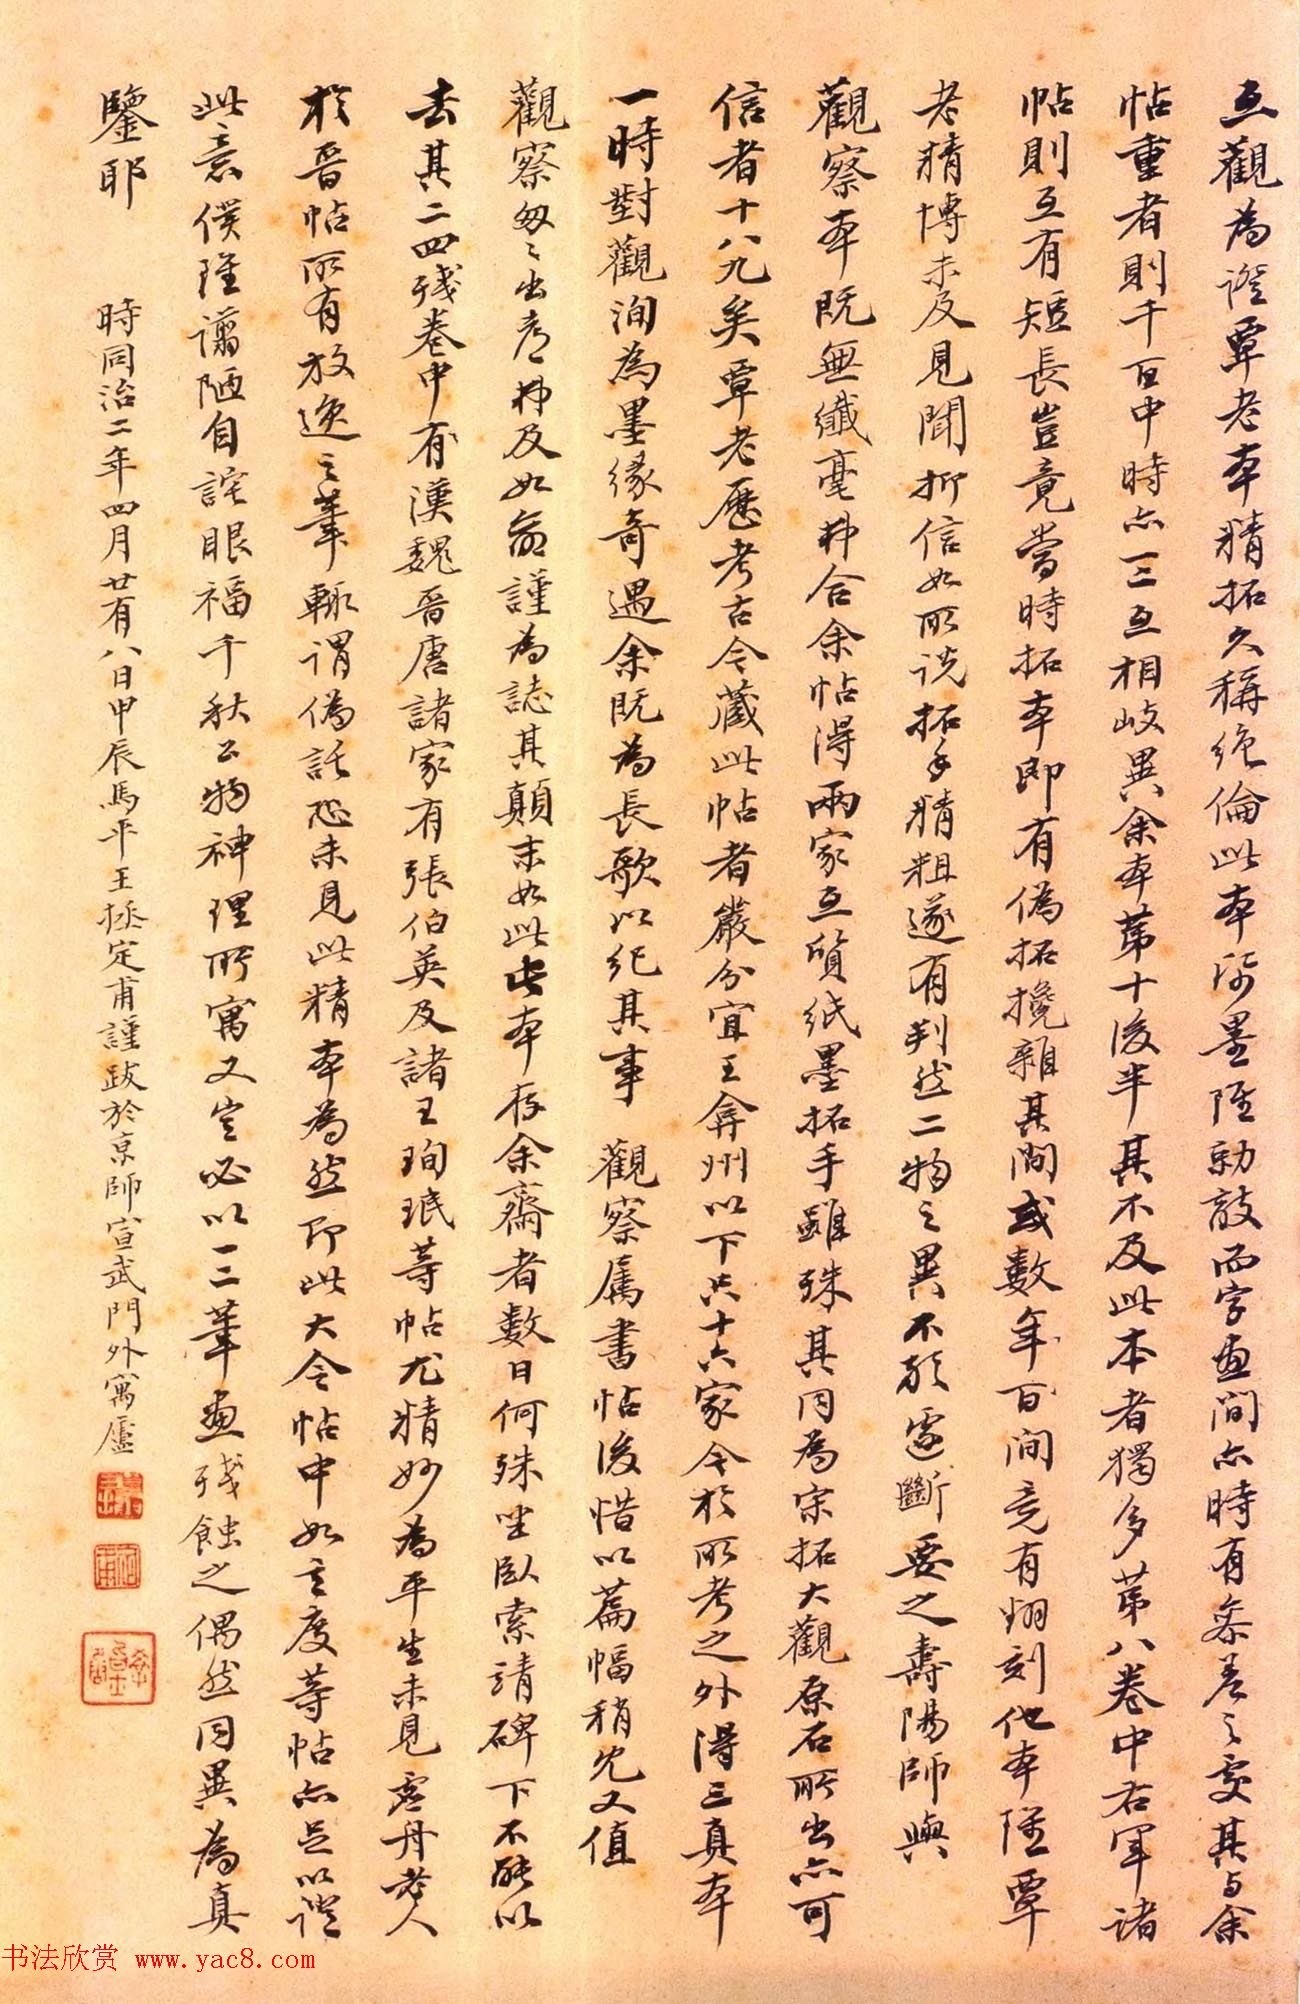 互觀為證覃老本精拓久稱絕倫此本紙墨陛勒敲而字畫間亦時有參差之處其與余
帖重者則千百中時亦一二互相岐異余本第十後半其不及此本者獨多第八卷中右軍諸
帖則互有短長豈竟當時拓本即有偽拓攙雜其間或數年百間竟有翻刻他本陛覃
老精博未及見聞抑信如所說拓手精粗遂有判然二物之異不敢遽斷要之壽陽師與
觀察本既無纖毫弗合余帖得兩家互質紙墨拓手雖殊其同為宋拓大觀原石所出亦可
信者十八九矣覃老歷考古今藏此帖者嚴分宜王弇州以下共十六家今於所考之外得三真本
一時對觀洵為墨緣奇遇余既為長歌以紀其事 觀察屬書帖後惜以篇幅稍冗又值
觀察匆匆出都弗及如命謹為誌其顛末如此此本存余齋者數日何殊坐臥索靖碑下不能以
去其二四殘卷中有漢魏晉唐諸家有張伯英及諸王珣珉等帖尤精妙為平生未見虛舟老人
於晉帖所有放逸之筆輒謂偽託恐未見此精本為然即此大令帖中如玄度等帖亦足以證
此意僕雖譾陋自詫眼福千秋公物神理所寓又豈必以一二筆畫殘蝕之偶然同異為真
鑒耶 時同治二年四月廿有八日甲辰馬平王拯定甫謹跋於京師宣武門外寓廬
书法欣赏 www.yac8.com